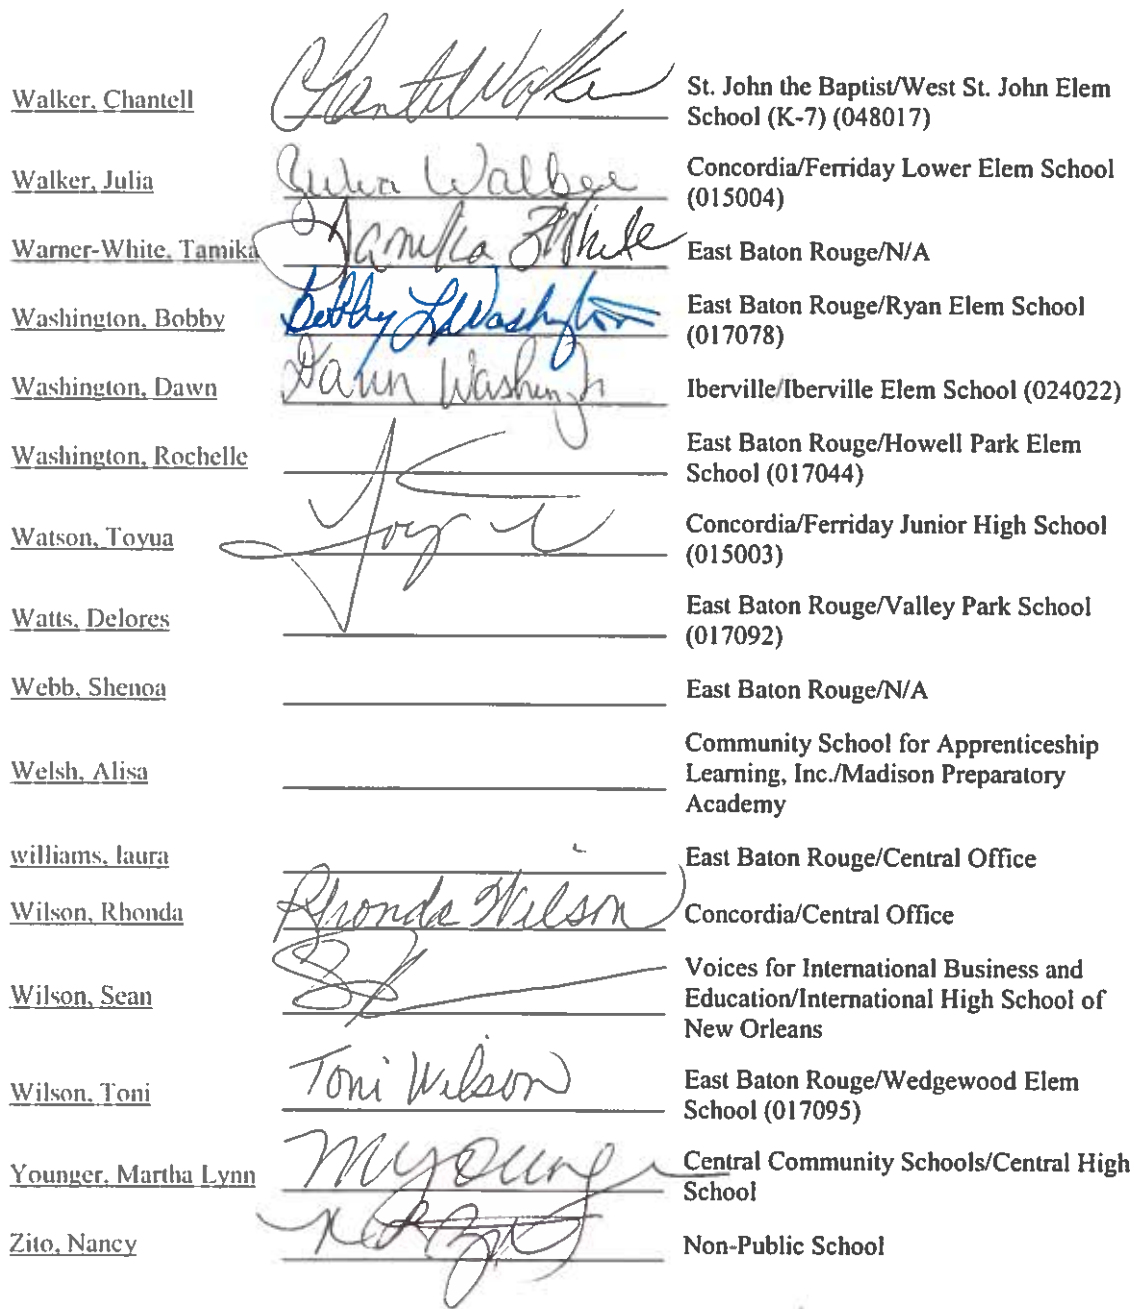 Walker, Chantell Chantell Walker St. John the Baptist/West St. John Elem
School (K-7) (048017)
Walker, Julia Julia Walker Concordia/Ferriday Lower Elem School
(015004)
Warner-White, Tamika Tamika White East Baton Rouge/N/A
Washington, Bobby Bobby L Washington East Baton Rouge/Ryan Elem School
(017078)
Washington, Dawn Dawn Washington Iberville/Iberville Elem School (024022)
Washington, Rochelle East Baton Rouge/Howell Park Elem
School (017044)
Watson, Toyua Concordia/Ferriday Junior High School
(015003)
Watts, Delores East Baton Rouge/Valley Park School
(017092)
Webb, Shenoa East Baton Rouge/N/A
Welsh, Alisa Community School for Apprenticeship
Learning, Inc./Madison Preparatory
Academy
williams, laura East Baton Rouge/Central Office
Wilson, Rhonda Rhonda Wilson Concordia/Central Office
Wilson, Sean Voices for International Business and
Education/International High School of
New Orleans
Wilson, Toni Toni Wilson East Baton Rouge/Wedgewood Elem
School (017095)
Younger, Martha Lynn MYounger Central Community Schools/Central High
School
Zito, Nancy Non-Public School